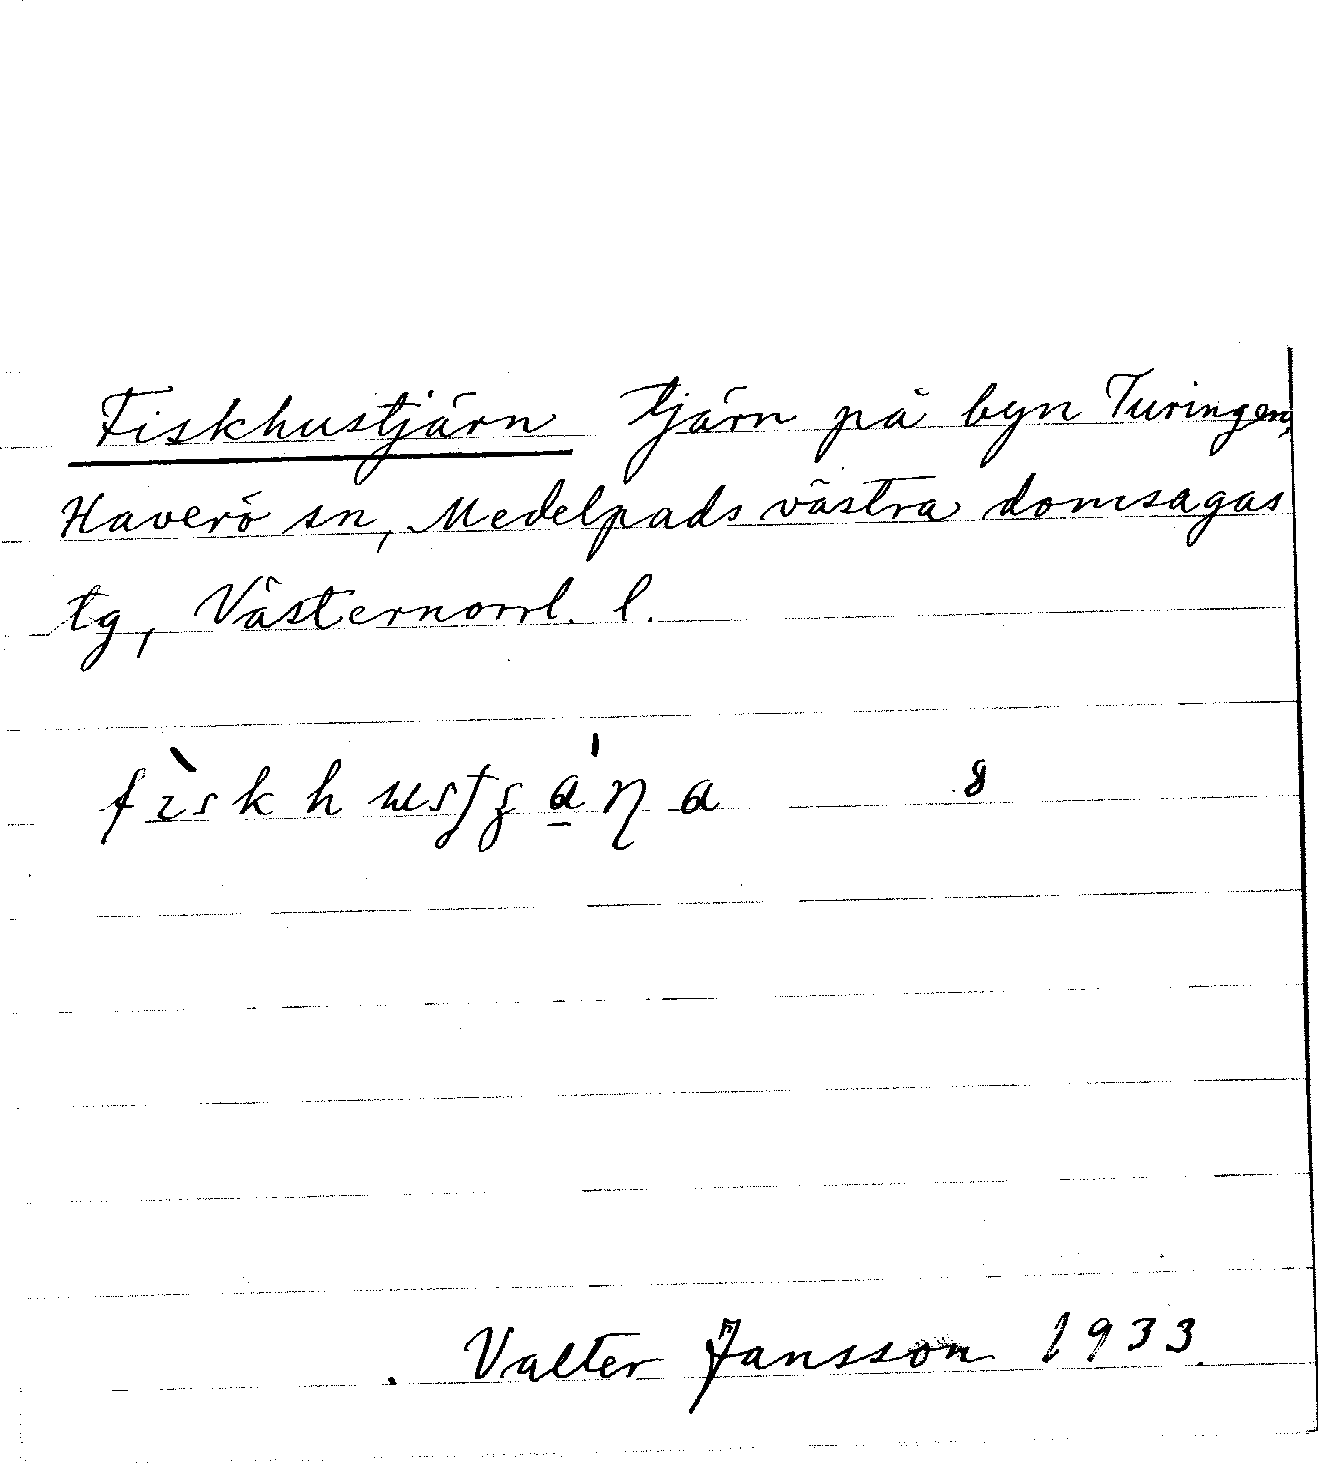 Fiskhustjärn tjärn på byn Turingen,
Haverö sn, Medelpads västra domsagas
tg, Västernorrl. l.
fìskhusʃʒa̠'ɳa 8
Valter Jansson 1933.